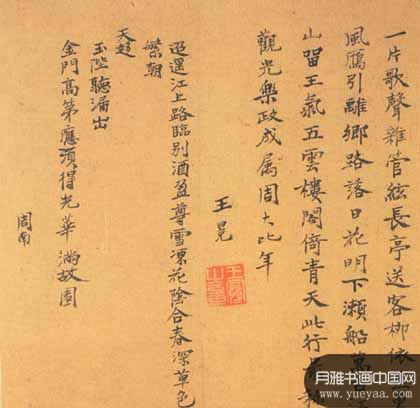 一片歌聲雜管絃長亭送客柳依
風鴈引離鄉路落日花明下瀨船萬
山留王氣五雲樓閣倚青天此行
觀光樂政成属周大比年
王冕
迢遞江上路臨別酒盈尊雪凍花陰合春深草色
繁朝
天趍
玉陛聽漏出
金門高第應須得光華滿故園
周南
月雅书画中国网
www.yueyaa.com